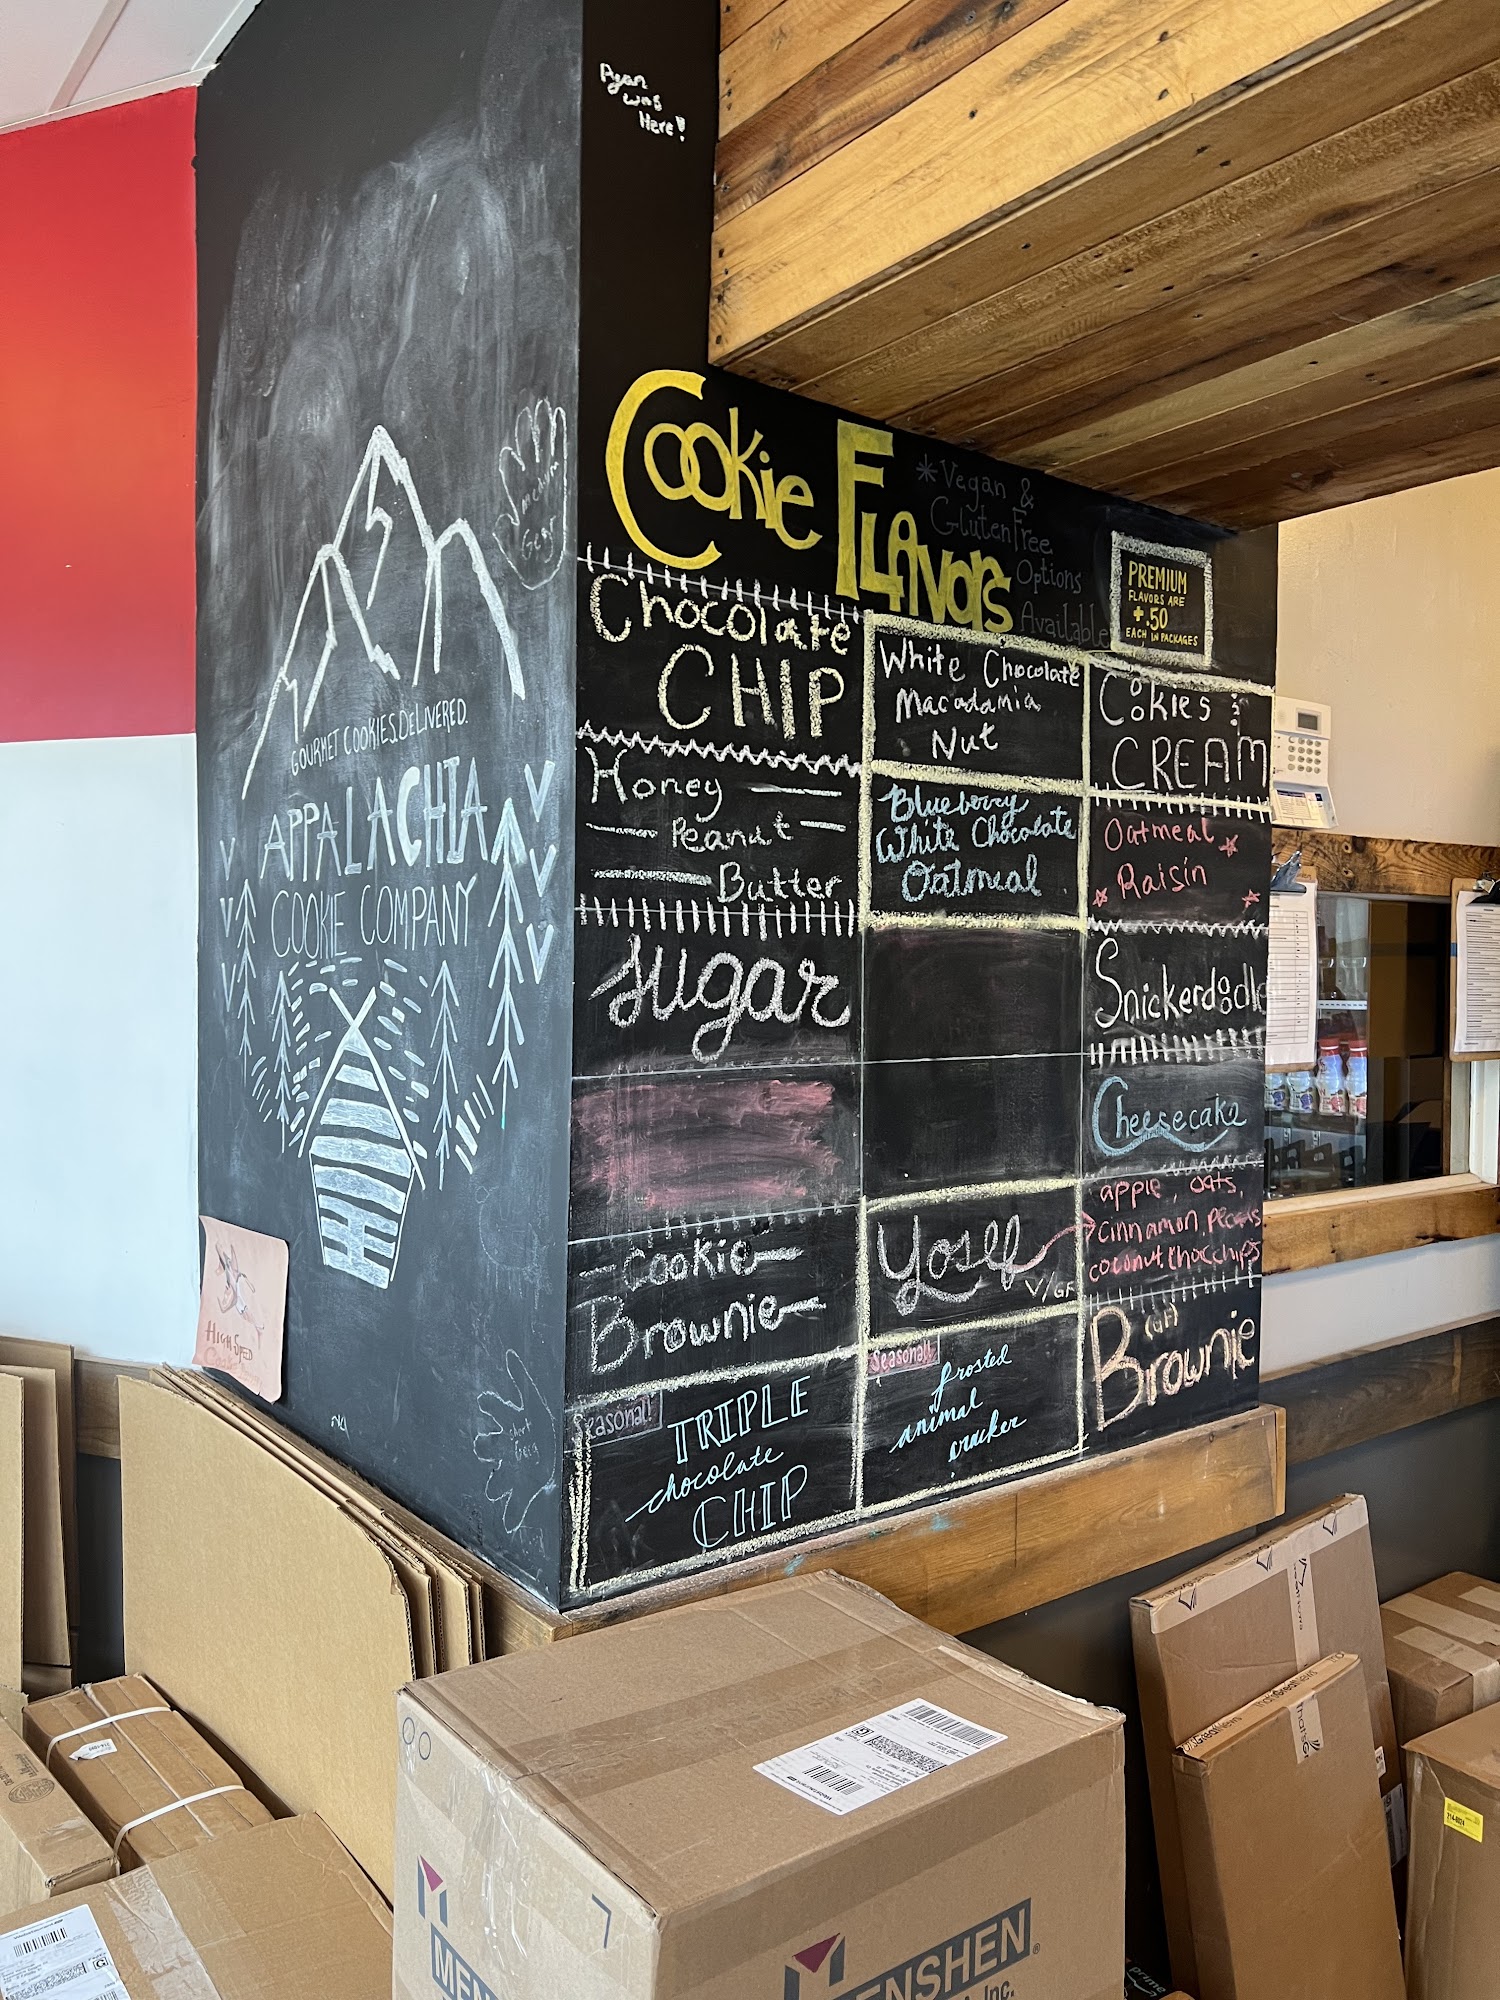 Ryan
was
Here!
Cookie Flavors
*Vegan &
GlutenFree
Options
Available
PREMIUM
FLAVORS ARE
+.50
EACH IN PACKAGES
GOURMET COOKIES DELIVERED.
APPALACHIA
COOKIE COMPANY
Chocolate
CHIP
Honey
Peanut
Butter
Sugar
-Cookie-
Brownie-
Seasonal!
TRIPLE
chocolate
CHIP
White Chocolate
Macadamia
Nut
Blueberry
White Chocolate
Oatmeal
Yosef
V/GF
Seasonal!
frosted
animal
cracker
Cookies &
CREAM
Oatmeal
Raisin
Snickerdoodle
Cheesecake
apple, oats,
cinnamon, pecans
coconut, choc chips
(GF)
Brownie
HIGH SPEED
MENSHEN
Inc.
7
214-8024